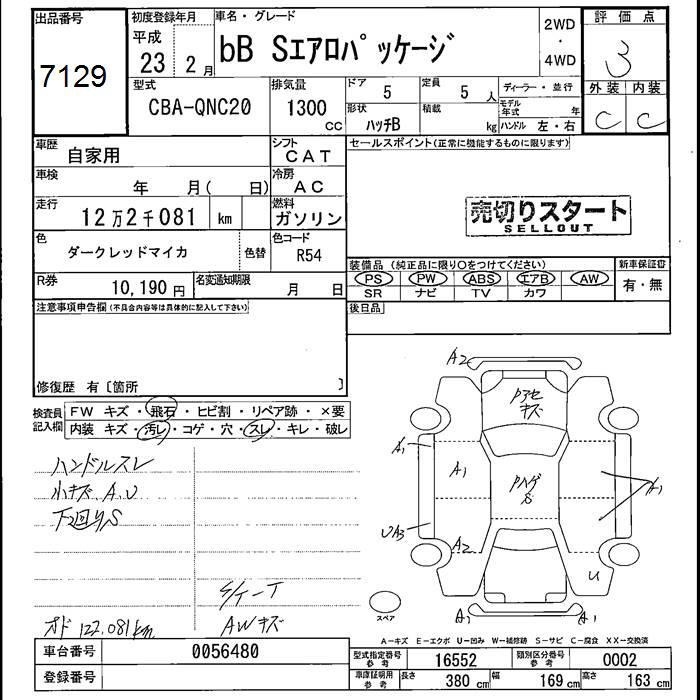 出品番号
7129
初度登録年月
平成
23 2 月
車名・グレード
bB Sエアロパッケージ
2WD
・
4WD
評価点
3
外装 内装
C C
型式
CBA-QNC20
排気量
1300
CC
ドア
5
定員
5 人
形状
ハッチB
積載
kg
ディーラー・並行
モデル年式 年
ハンドル 左・右
車歴
自家用
シフト
CAT
車検
年 月( 日)
冷房
AC
走行
12万2千081 km
燃料
ガソリン
色
ダークレッドマイカ
色替
色コード
R54
R券
10,190 円
名変通知期限
月 日
セールスポイント(正常に機能するものに限ります)
売切りスタート
SELLOUT
装備品 (純正品に限り○をつけてください)
新車保証書
PS PW ABS エアB AW
有・無
SR ナビ TV カワ
後日品
注意事項申告欄(不具合内容等は具体的に記入して下さい)
修復歴 有〔箇所 〕
検査員記入欄
FW キズ・飛石・ヒビ割・リペア跡・×要
内装 キズ・汚レ・コゲ・穴・スレ・キレ・破レ
ハンドルスレ
小キズ A.U
下回りS
AWキズ
オド 122,081km
A2
Pアセ
キズ
A1
A1
Pハゲ
S
A1
UA3
A2
U
A1
A1
スペア
A-キズ E-エクボ U-凹み W-補修跡 S-サビ C-腐食 XX-交換済
車台番号
0056480
登録番号
型式指定番号
参考
16552
類別区分番号
参考
0002
車庫証明用
参考
長さ
380 cm
幅
169 cm
高さ
163 cm